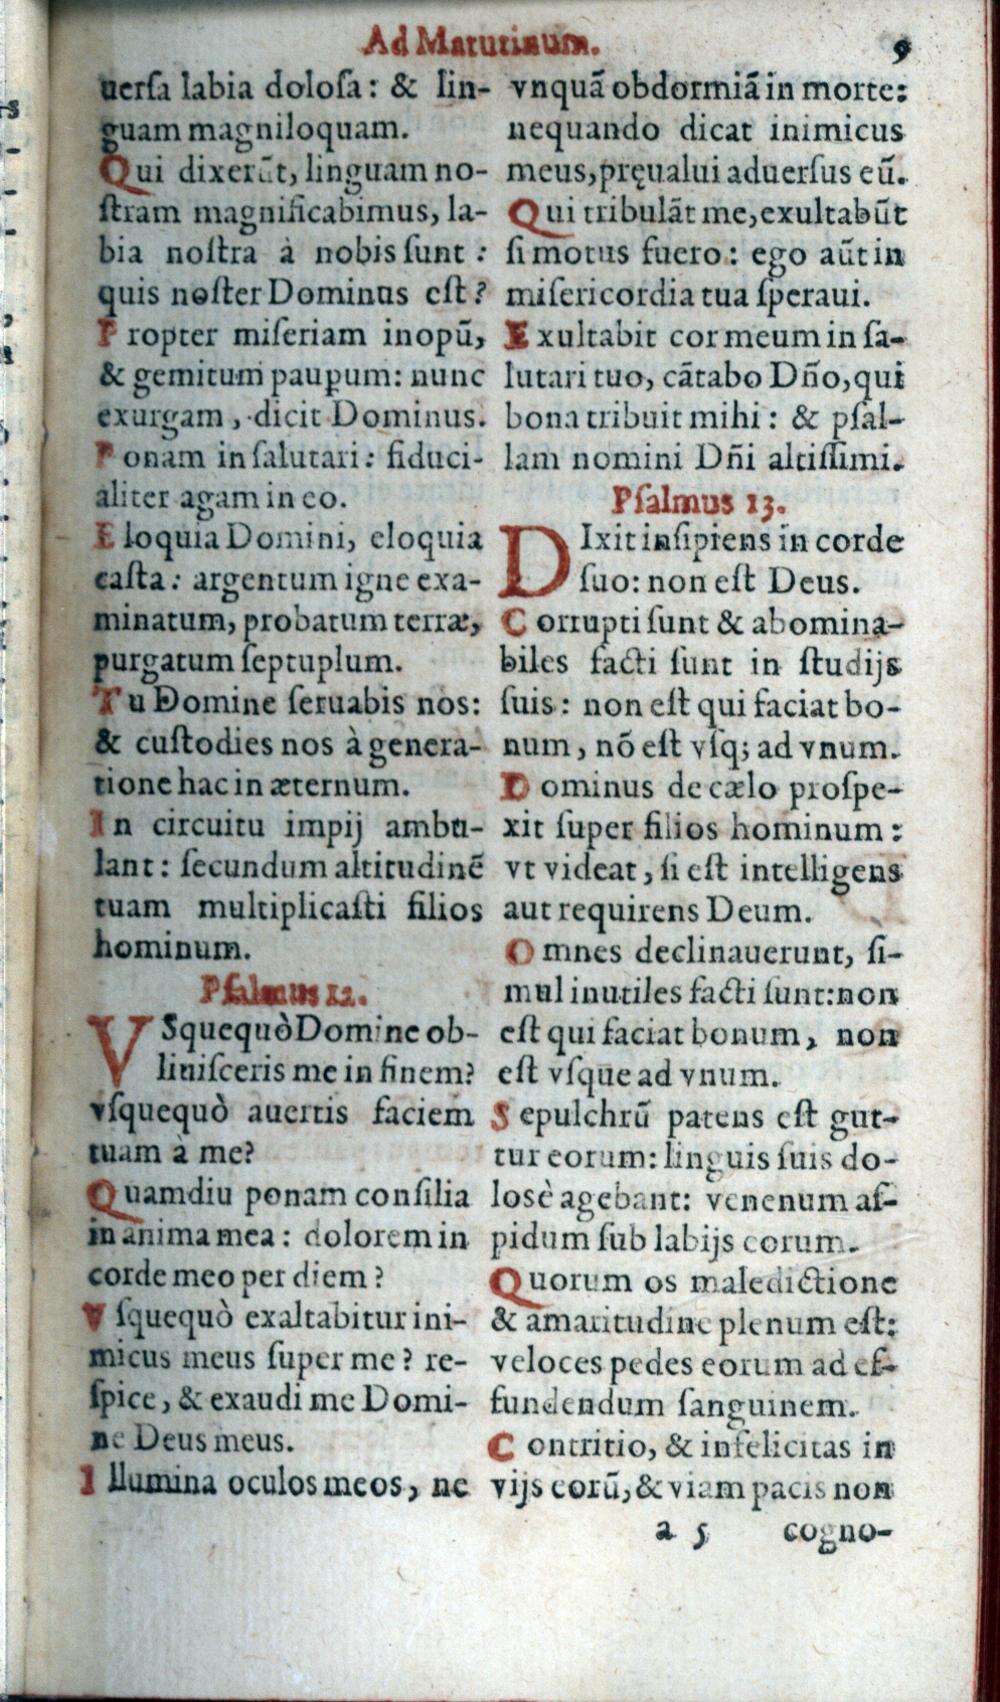 Ad Matutinum. 9
uerſa labia doloſa: & lin-
guam magniloquam.
Qui dixerūt, linguam no-
ſtram magnificabimus, la-
bia noſtra à nobis ſunt :
quis noſter Dominus eſt?
Propter miſeriam inopū,
& gemitum paupum: nunc
exurgam, dicit Dominus.
Ponam in ſalutari: fiduci-
aliter agam in eo.
Eloquia Domini, eloquia
caſta: argentum igne exa-
minatum, probatum terræ,
purgatum ſeptuplum.
Tu Domine ſeruabis nos:
& cuſtodies nos à genera-
tione hac in æternum.
In circuitu impij ambu-
lant: ſecundum altitudinē
tuam multiplicaſti filios
hominum.
Pſalmus 12.
VSquequò Domine ob-
liuiſceris me in finem?
vſquequò auertis faciem
tuam à me?
Quamdiu ponam conſilia
in anima mea: dolorem in
corde meo per diem?
Vſquequò exaltabitur ini-
micus meus ſuper me? re-
ſpice, & exaudi me Domi-
ne Deus meus.
Illumina oculos meos, ne
vnquā obdormiā in morte:
nequando dicat inimicus
meus, pręualui aduerſus eū.
Qui tribulāt me, exultabūt
ſi motus fuero: ego aūt in
miſericordia tua ſperaui.
Exultabit cor meum in ſa-
lutari tuo, cātabo Dño, qui
bona tribuit mihi: & pſal-
lam nomini Dñi altiſſimi.
Pſalmus 13.
DIxit inſipiens in corde
ſuo: non eſt Deus.
Corrupti ſunt & abomina-
biles facti ſunt in ſtudijs
ſuis: non eſt qui faciat bo-
num, nō eſt vſq; ad vnum.
Dominus de cælo proſpe-
xit ſuper filios hominum:
vt videat, ſi eſt intelligens
aut requirens Deum.
Omnes declinauerunt, ſi-
mul inutiles facti ſunt: non
eſt qui faciat bonum, non
eſt vſque ad vnum.
Sepulchrū patens eſt gut-
tur eorum: linguis ſuis do-
losè agebant: venenum aſ-
pidum ſub labijs eorum.
Quorum os maledictione
& amaritudine plenum eſt:
veloces pedes eorum ad ef-
fundendum ſanguinem.
Contritio, & infelicitas in
vijs eorū, & viam pacis non
a 5 cogno-